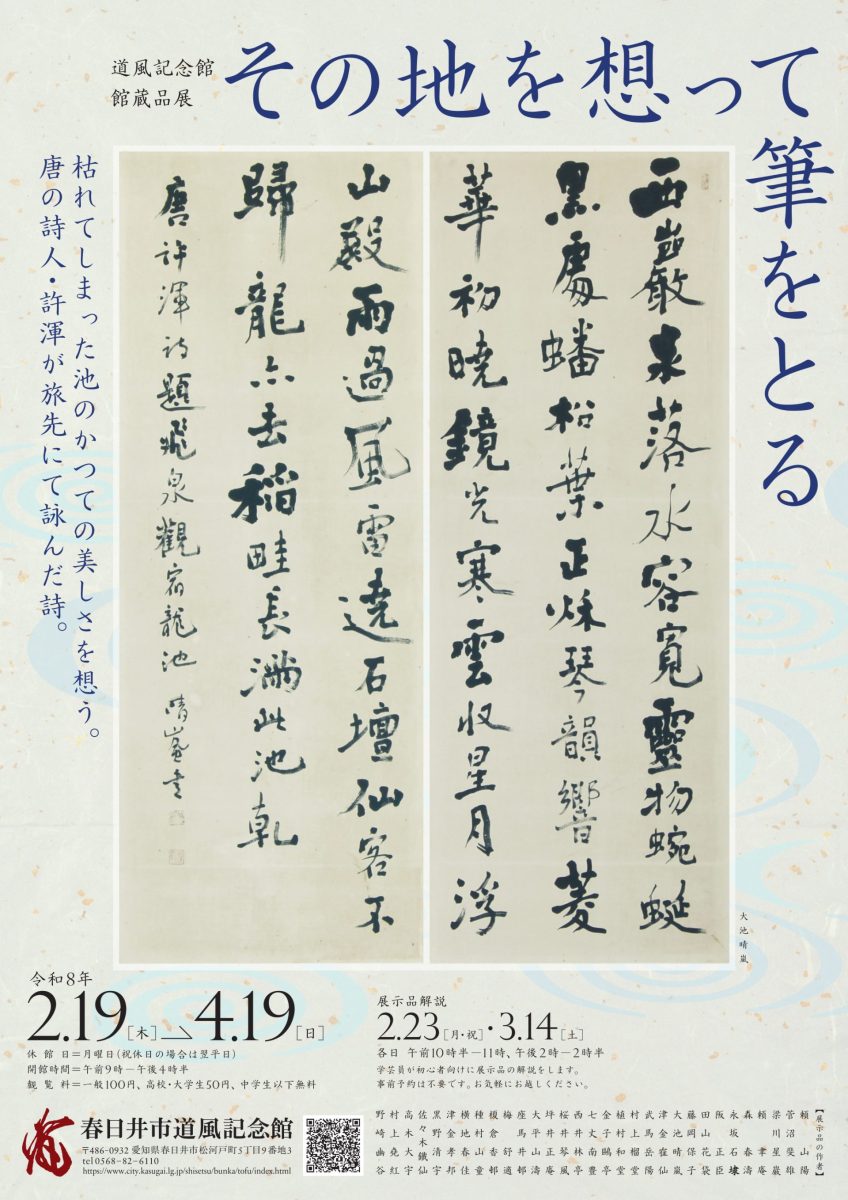 道風記念館
館蔵品展
その地を想って
筆をとる
枯れてしまった池のかつての美しさを想う。
唐の詩人・許渾が旅先にて詠んだ詩。
西巖泉落水容寛靈物蜿蜒
黒處蟠松葉正秋琴韻響菱
華初曉鏡光寒雲收星月浮
山殿雨過風雷遶石壇仙客不
歸龍亦去稲畦長滿此池乾
唐許渾詩題飛泉觀宿龍池 晴嵐書
大池晴嵐
令和8年
2.19[木]→4.19[日]
休館日=月曜日(祝休日の場合は翌平日)
開館時間=午前9時―午後4時半
観覧料=一般100円、高校・大学生50円、中学生以下無料
展示品解説
2.23[月・祝]・3.14[土]
各日 午前10時半―11時、午後2時―2時半
学芸員が初心者向けに展示品の解説をします。
事前予約は不要です。お気軽にお越しください。
春日井市道風記念館
〒486-0932 愛知県春日井市松河戸町5丁目9番地3
tel 0568-82-6110
https://www.city.kasugai.lg.jp/shisetsu/bunka/tofu/index.html
【展示品の作者】
頼山陽
菅沼斐雄
梁川星巌
頼聿庵
森春濤
永坂石埭
阪正臣
田山花袋
藤岡保子
大池晴嵐
津金寉仙
武馬岳陽
村上榴堂
植村和堂
金子鷗亭
西井林亭
桜井琴風
大平山濤
座馬井邨
梅舒適
榎倉香邨
種村山童
津金孝邦
黒野清宇
佐々木鐡仙
高木大宇
野崎幽谷